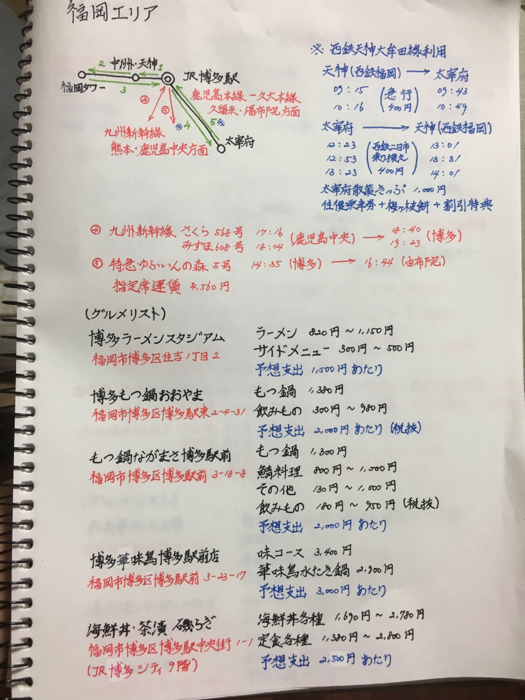 福岡エリア
※ 西鉄天神大牟田線利用
天神(西鉄福岡) → 太宰府
09:15 (急行 400円) 09:43
10:16 10:49
太宰府 → 天神(西鉄福岡)
12:23 (西鉄二日市乗り換え 400円) 13:01
12:53 13:31
13:23 14:01
太宰府散策きっぷ 1,000円
往復乗車券+梅ヶ枝餅+割引特典
中州・天神
2
1
JR博多駅
福岡タワー
3
鹿児島本線-久大本線
久留米・湯布院方面
4
5
九州新幹線
熊本・鹿児島中央方面
太宰府
九州新幹線 さくら 568号 17:16 (鹿児島中央) → 18:40 (博多)
みずほ 608号 18:04 19:23
特急ゆふいんの森 5号 14:35 (博多) → 16:44 (由布院)
指定席運賃 4,560円
(グルメリスト)
博多ラーメンスタジアム ラーメン 820円~1,150円
福岡市博多区住吉1丁目2 サイドメニュー 300円~500円
予想支出 1,500円あたり
博多もつ鍋おおやま もつ鍋 1,380円
福岡市博多区博多駅東2-4-31 飲みもの 300円~980円
予想支出 2,000円あたり (税抜)
もつ鍋ながまさ博多駅前 もつ鍋 1,300円
福岡市博多区博多駅前 3-18-8 鯖料理 800円~1,000円
その他 130円~1,000円
飲みもの 180円~950円 (税抜)
予想支出 2,000円あたり
博多華味鳥博多駅前店 味コース 3,400円
福岡市博多区博多駅前 3-23-17 華味鳥水たき鍋 2,900円
予想支出 3,000円あたり
海鮮丼・茶漬 磯らぎ 海鮮丼各種 1,690円~2,780円
福岡市博多区博多駅中央街 1-1 定食各種 1,380円~2,800円
(JR博多シティ9階) 予想支出 2,500円あたり